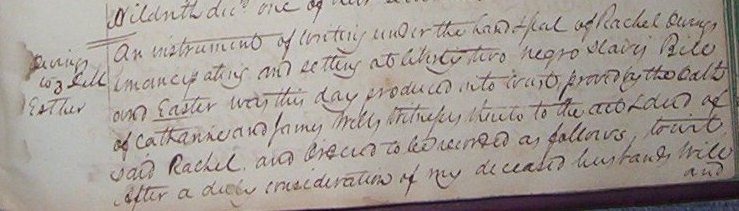 Hildreth dec.d one of her
An instrument of writing under the hand & seal of Rachel Owings
emancipating and setting at liberty two negro slaves Bill
and Easter was this day produced into Court, proved by the oath
of Catharine and James Wells witnesses thereto to the act & deed of
said Rachel. and Ordered to be recorded as follows, towit,
After a duly consideration of my deceased husbands Will
and
Owings
to Bill
Esther